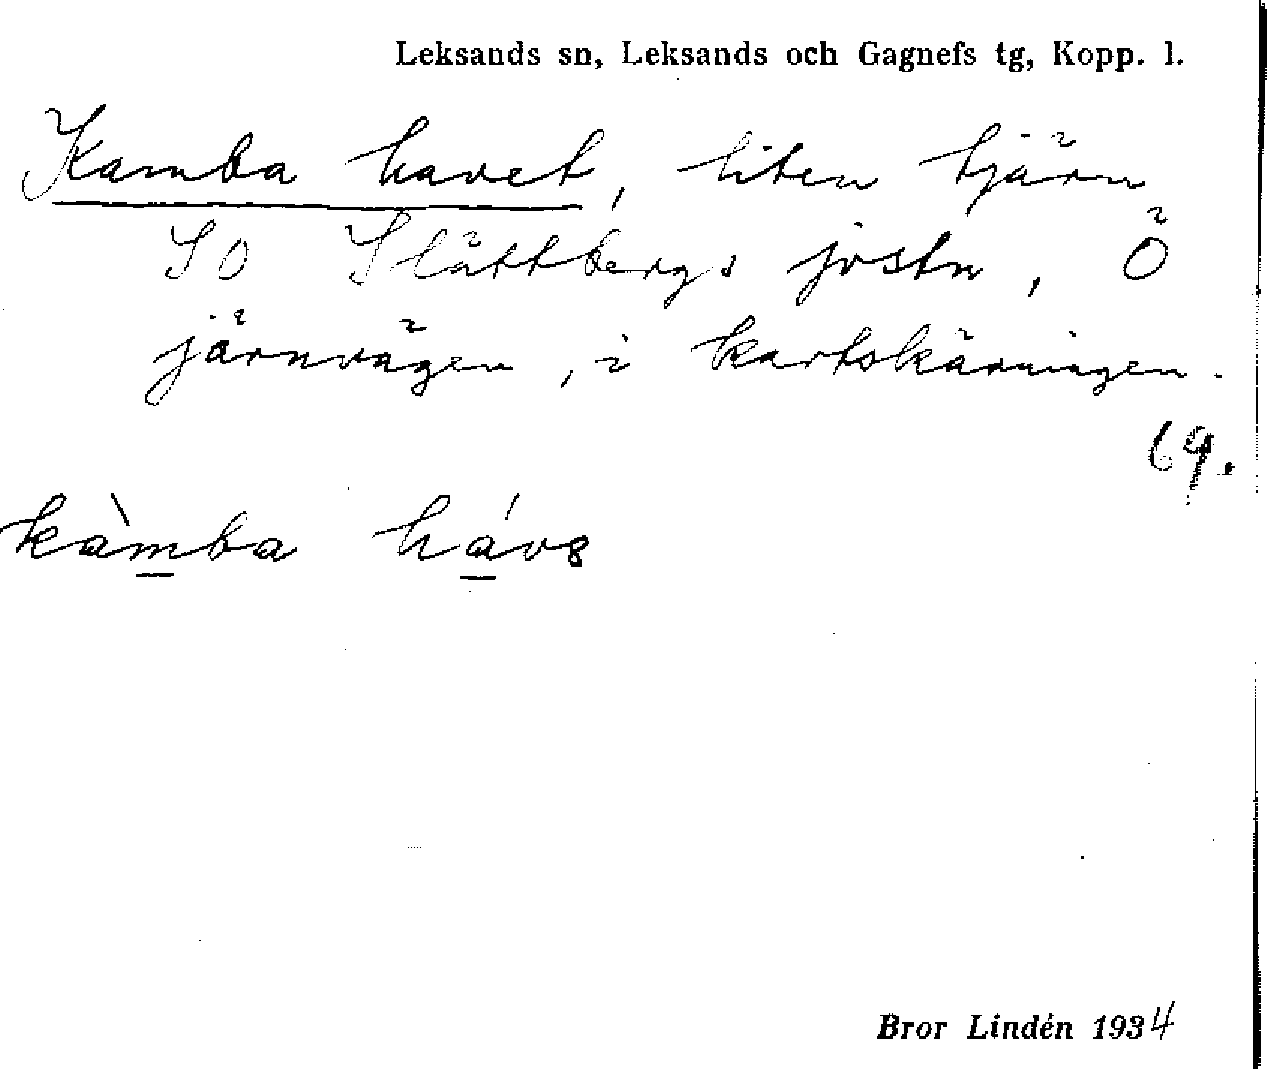 Leksands sn, Leksands och Gagnefs tg, Kopp. l.
Kamba havet, liten tjärn
SO Slättbergs jvstn, Ö
järnvägen, i kartskärningen.
69.
kàmba hávə
Bror Lindén 1934